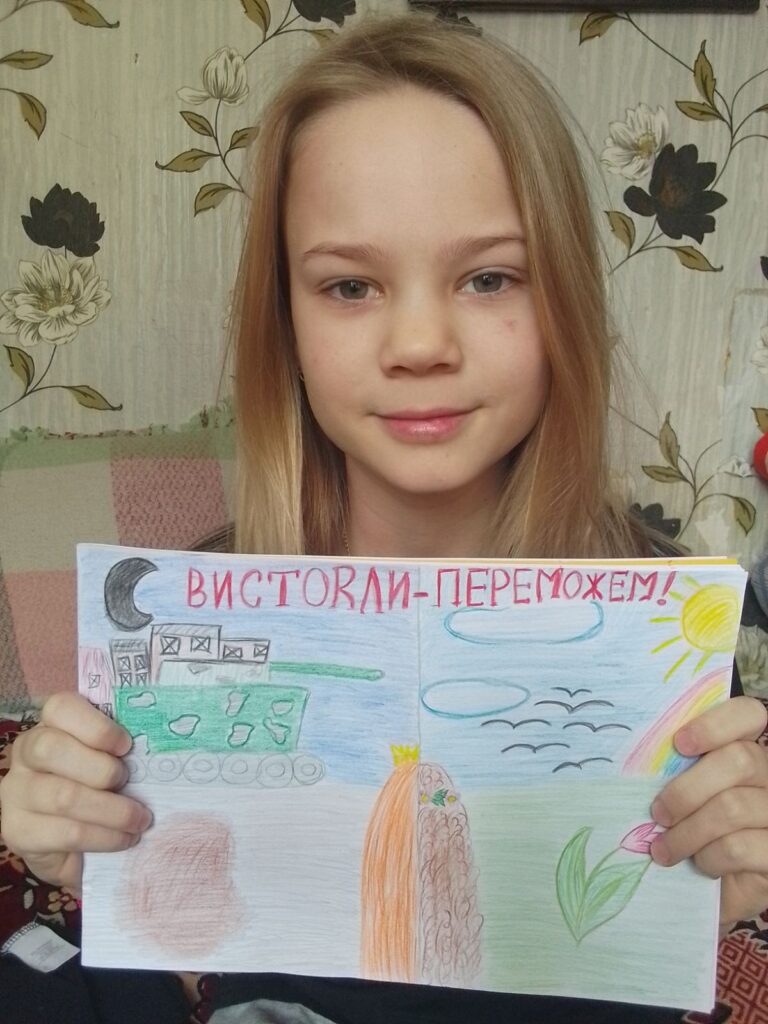 ВИСТОЯЛИ-ПЕРЕМОЖЕМ!